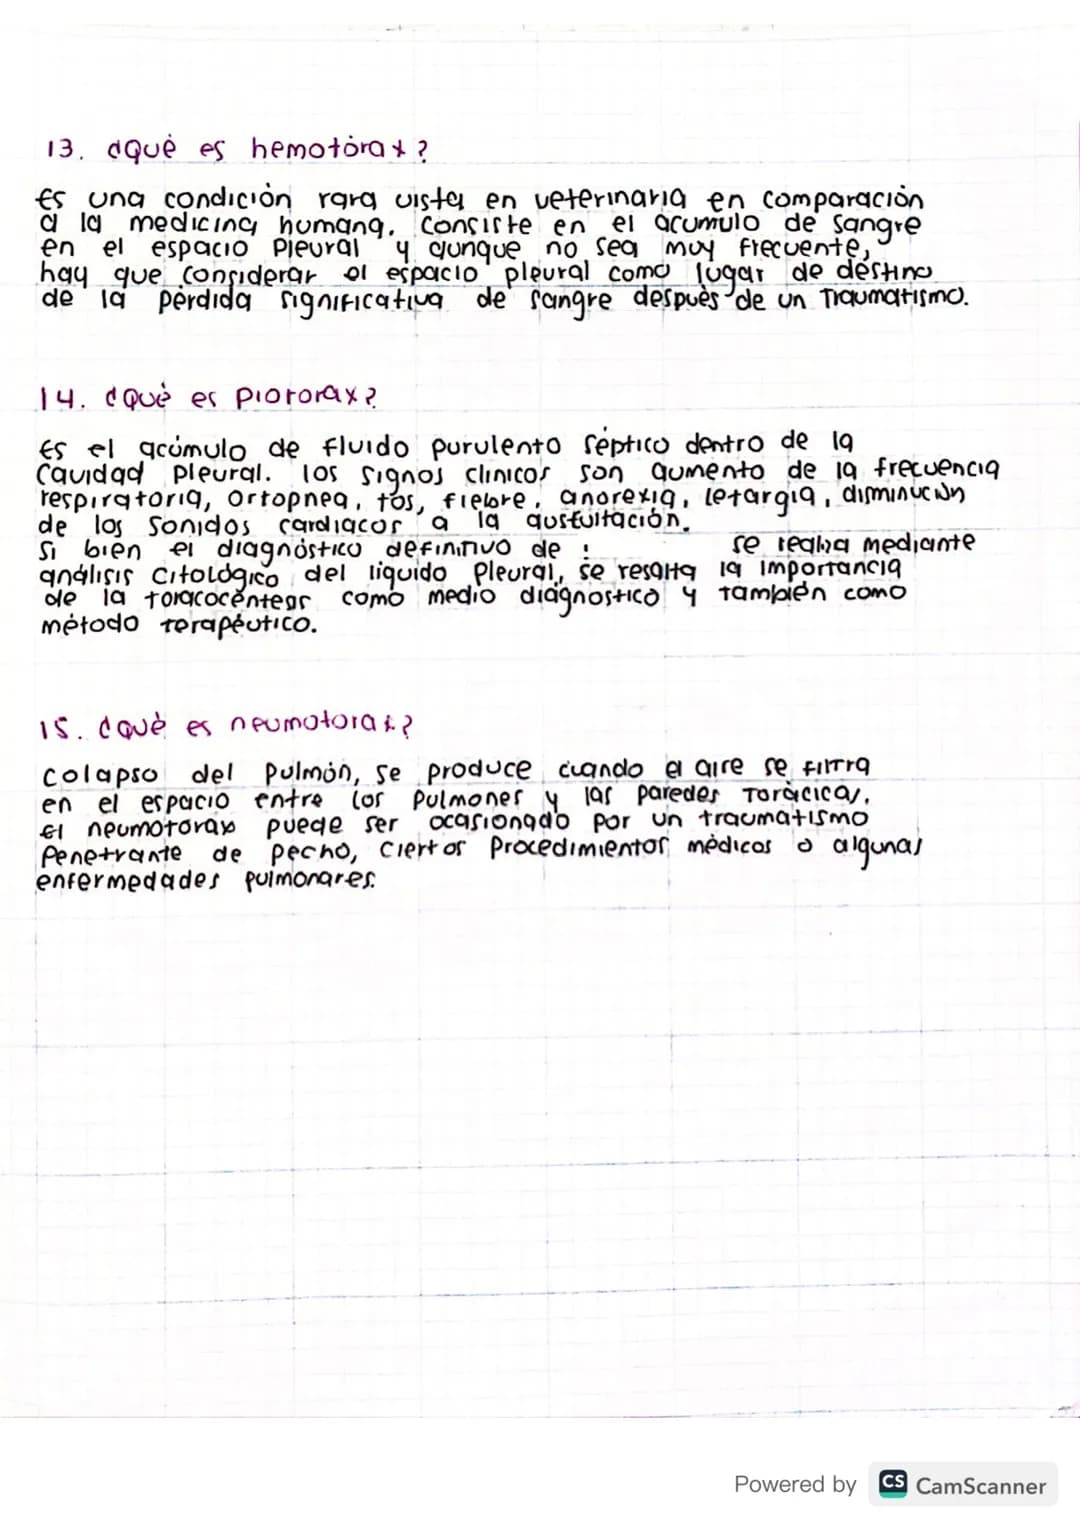 13. ¿Qué es hemotórax?
Es una condición rara vista en veterinaria en comparación
a la medicina humana. Consiste en el acumulo de sangre
en el espacio Pleural y aunque no sea muy frecuente,
hay que considerar el espacio pleural como lugar de destino
de la pérdida significativa de sangre después de un Traumatismo.
14. ¿Qué es Piotorax?
Es el acúmulo de fluido purulento séptico dentro de la
Cavidad Pleural. los signos clínicos son aumento de la frecuencia
respiratoria, ortopnea, tos, fiebre, anorexia, letargia, disminución
de los sonidos cardiacos a la auscultación.
Si bien el diagnóstico definitivo de se realiza mediante
análisis citológico del líquido Pleural, se resalta la importancia
de la toracocentesis como medio diagnostico y también como
método terapéutico.
15. ¿Qué es neumotorax?
Colapso del Pulmón, se produce cuando el aire se filtra
en el espacio entre los Pulmones y las paredes Torácicas.
El neumotorax puede ser ocasionado por un traumatismo
Penetrante de pecho, Ciertos Procedimientos médicos o algunas
enfermedades pulmonares.
Powered by CS CamScanner